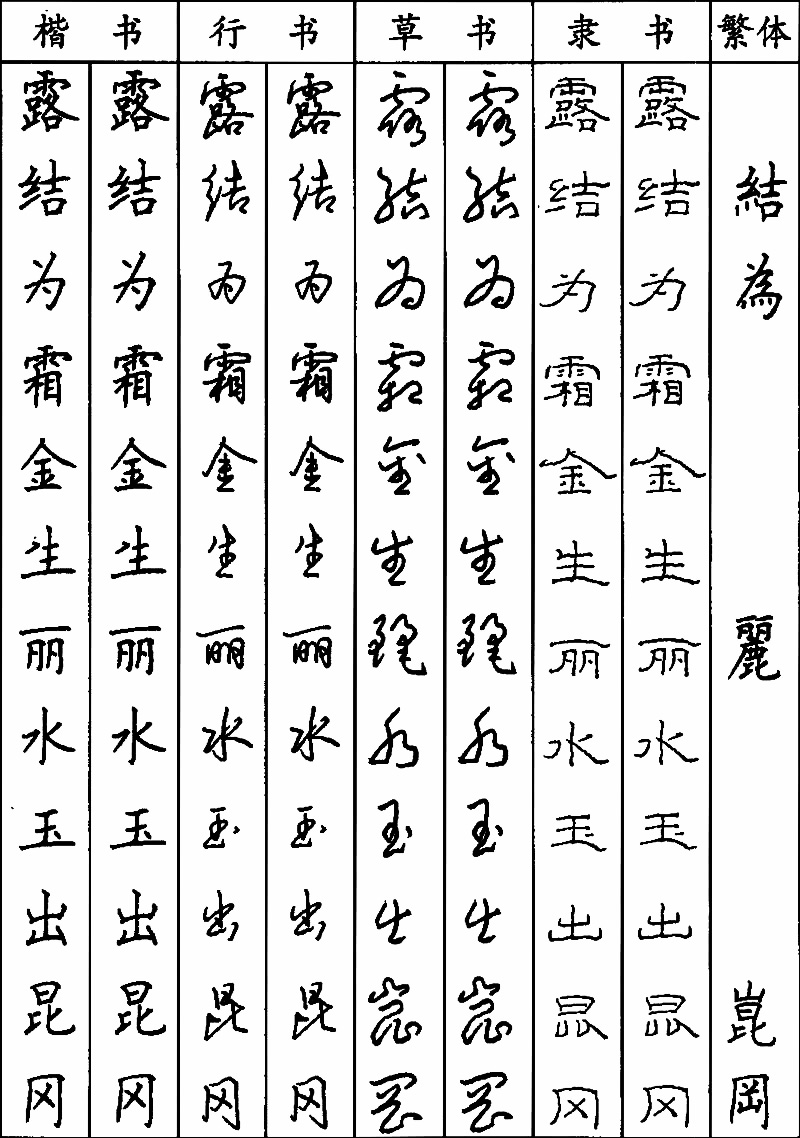 楷书 行书 草书 隶书 繁体
露 露 露 露 露 露 露 露
结 结 结 结 结 结 结 结 結
为 为 为 为 为 为 为 为 為
霜 霜 霜 霜 霜 霜 霜 霜
金 金 金 金 金 金 金 金
生 生 生 生 生 生 生 生
丽 丽 丽 丽 丽 丽 丽 丽 麗
水 水 水 水 水 水 水 水
玉 玉 玉 玉 玉 玉 玉 玉
出 出 出 出 出 出 出 出
昆 昆 昆 昆 崑 崑 昆 昆 崑
冈 冈 冈 冈 岡 岡 冈 冈 岡